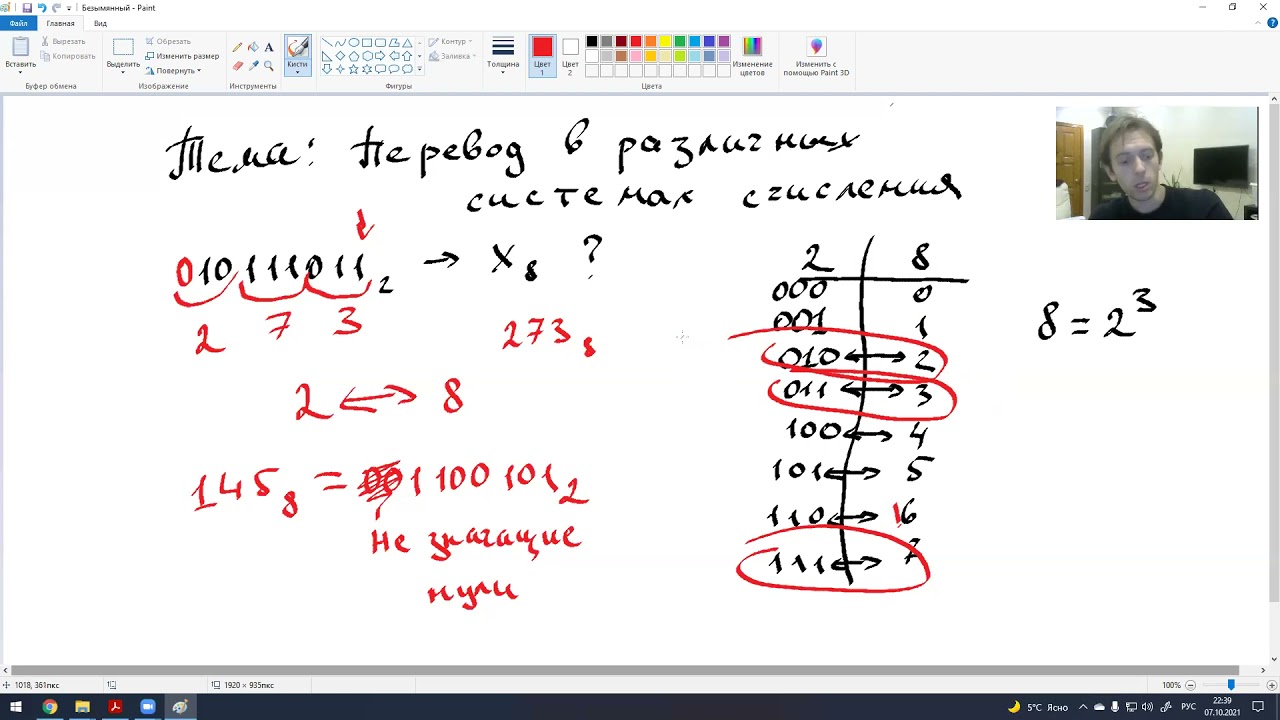 Безымянный - Paint
Файл Главная Вид
Вставить Вырезать Копировать Выделить Обрезать Изменить размер Повернуть Кисти Контур Заливка Толщина Цвет 1 Цвет 2 Изменение цветов Изменить с помощью Paint 3D
Буфер обмена Изображение Инструменты Фигуры Цвета
Тема: Перевод в различных
системах счисления
010111011₂ → X₈ ?
2 7 3
273₈
2 ↔ 8
145₈ = 001 100 101₂
Не значащие
нули
2 | 8
000 0
001 1
010 ↔ 2
011 ↔ 3
100 ↔ 4
101 ↔ 5
110 ↔ 6
111 ↔ 7
8 = 2³
1018, 361пкс 1920 × 935пкс 100%
5°C Ясно РУС 22:39
07.10.2021